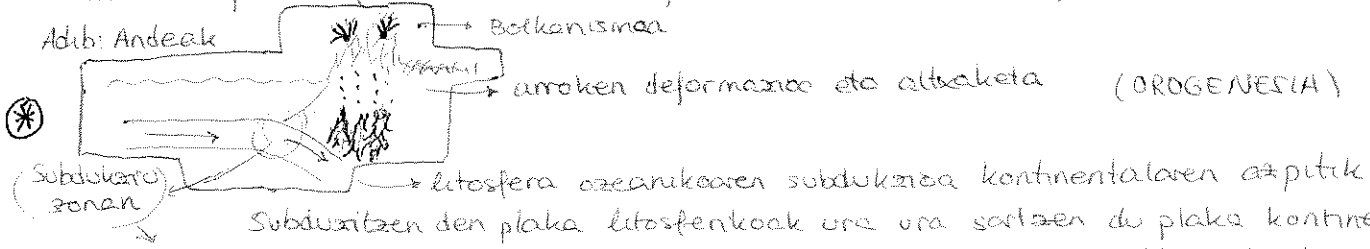 Adib: Andeak
Bolkanismoa
arroken deformazioa eta altxaketa (OROGENESIA)
Subdukzio zonan
litosfera ozeanikoaren subdukzioa kontinentalaren azpitik
Subduzitzen den plaka litosferikoak ura sartzen du plaka